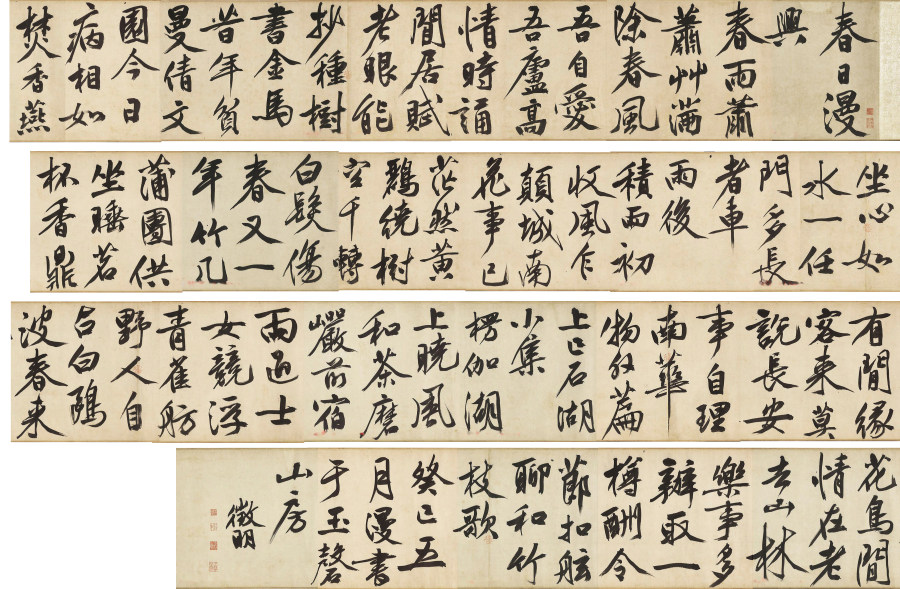 春日漫
興
春雨蕭
蕭艸滿
除春風
吾自愛
吾廬高
情時誦
閒居賦
老眼能
抄種樹
書金馬
昔年貧
曼倩文
園今日
病相如
焚香燕
坐心如
水一任
門多長
者車
雨後
積雨初
收風乍
顛城南
花事已
茫然黃
鸝繞樹
空千轉
白髮傷
春又一
年竹几
蒲團供
坐睡茗
杯香鼎
有閒緣
客來莫
說長安
事自理
南華
物外篇
上巳石湖
小集
楞伽湖
上曉風
和茶磨
巖前宿
雨過士
女競浮
青雀舫
野人自
占白鷗
波春來
花鳥閒
情在老
去山林
樂事多
辦取一
樽酬令
節扣舷
聊和竹
枝歌
癸巳五
月漫書
于玉磬
山房
徵明